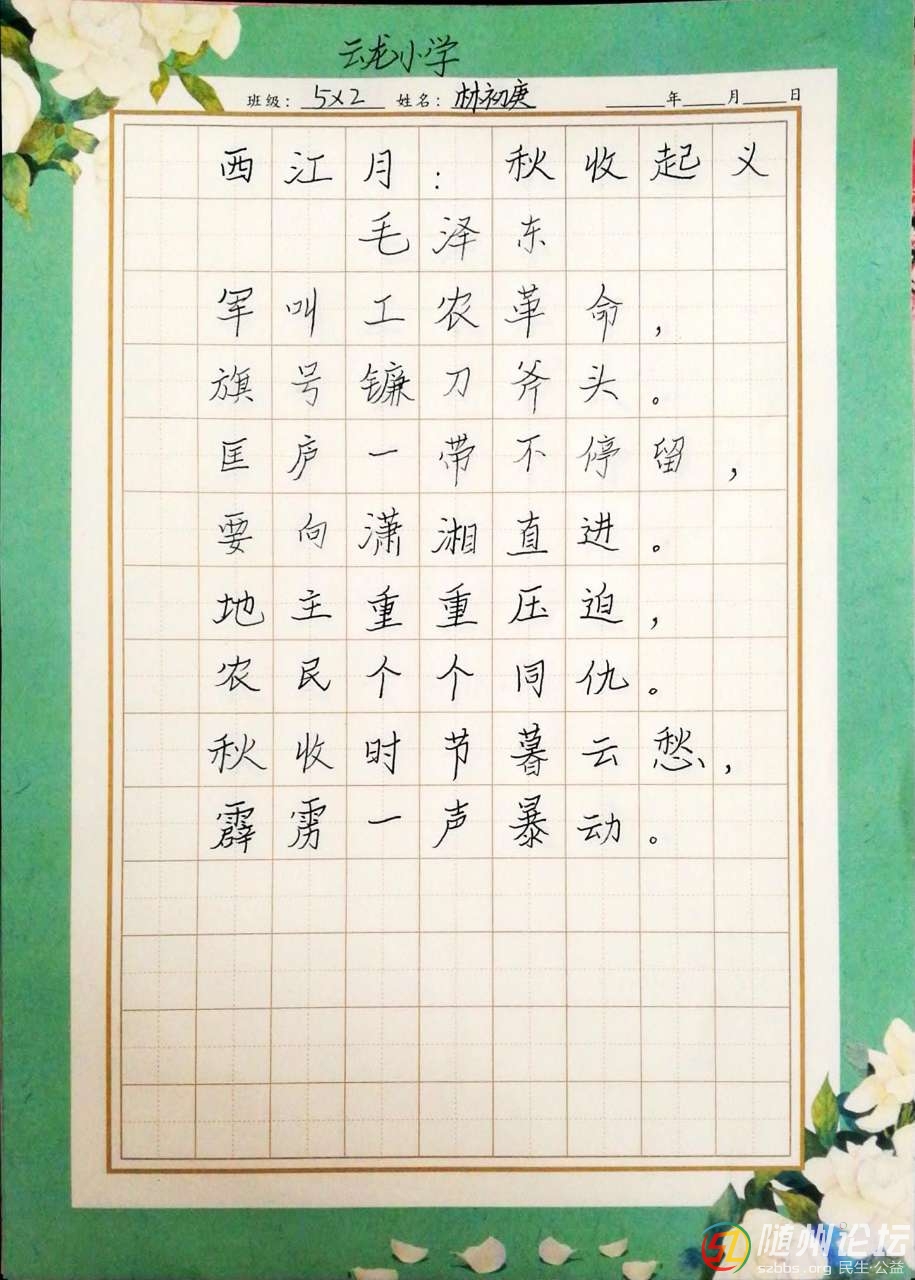 云龙小学
班级：5×2 姓名：林初庚 年 月 日
西江月：秋收起义
毛泽东
军叫工农革命，
旗号镰刀斧头。
匡庐一带不停留，
要向潇湘直进。
地主重重压迫，
农民个个同仇。
秋收时节暮云愁，
霹雳一声暴动。
随州论坛
szbbs.org 民生·公益